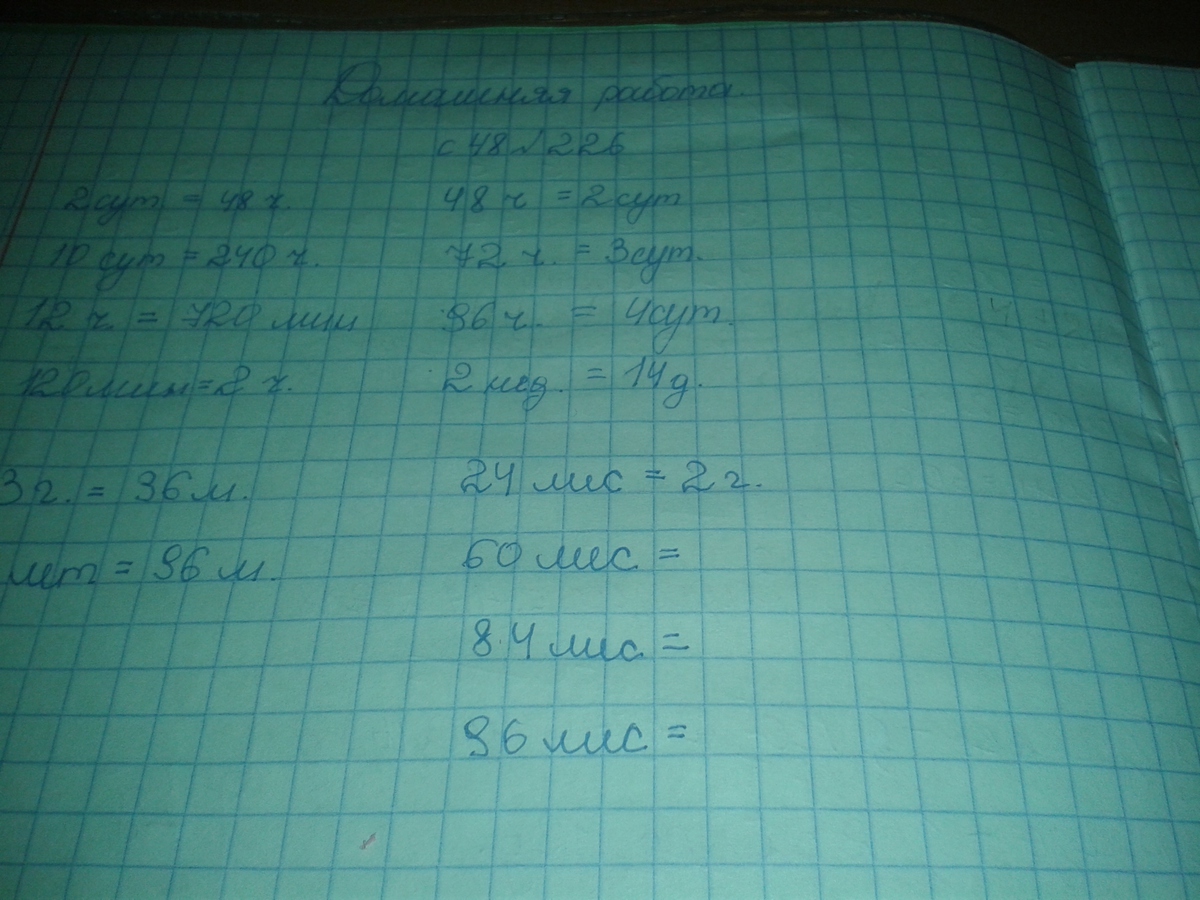 Домашняя работа.
с 48 № 226
2 сут = 48 ч. 48 ч = 2 сут
10 сут = 240 ч. 72 ч. = 3 сут.
12 ч. = 720 мин 96 ч. = 4 сут.
120 мин = 2 ч. 2 нед. = 14 д.
3 г. = 36 м. 24 мес = 2 г.
лет = 96 м. 60 мес =
84 мес =
96 мес =